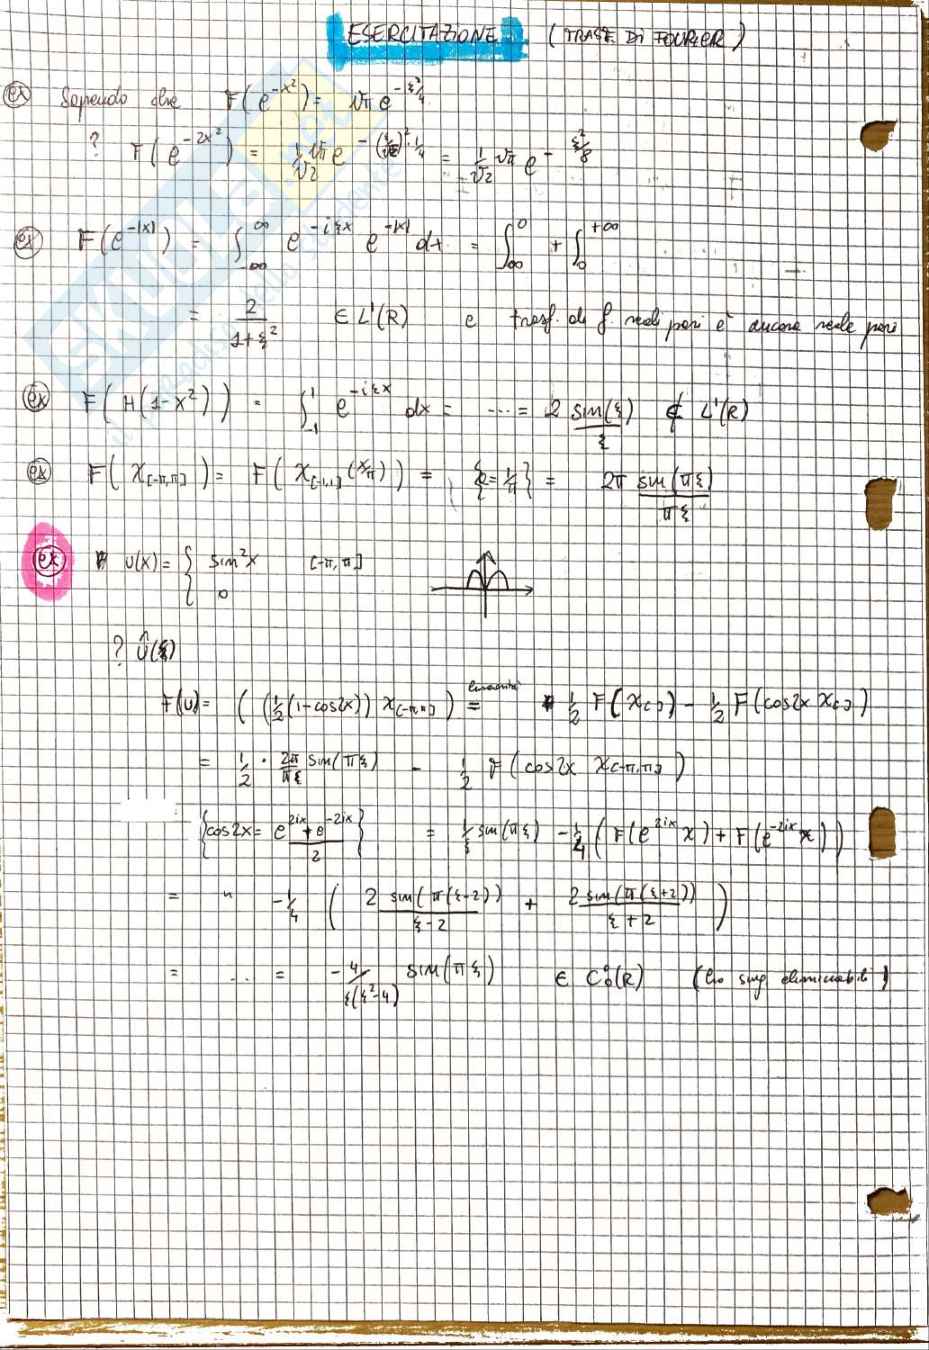 ESERCITAZIONE (TRASF DI FOURIER)
ex Sapendo che F(e^{-x²}) = √π e^{-ξ²/4}
? F(e^{-2x²}) = 1/√2 √π e^{-(ξ/√2)²·1/4} = 1/√2 √π e^{-ξ²/8}
ex F(e^{-|x|}) = ∫_{-∞}^{∞} e^{-iξx} e^{-|x|} dx = ∫_{-∞}^{0} + ∫_{0}^{+∞}
= 2/(1+ξ²) ∈ L¹(R) e trasf. di f reali pari è ancora reale pari
ex F(H(1-x²)) = ∫_{-1}^{1} e^{-iξx} dx = ... = 2 sin(ξ)/ξ ∉ L¹(R)
ex F(χ_{[-π,π]}) = F(χ_{[-1,1]}(x/π)) = { a = 1/π } = 2π sin(πξ)/πξ
ex U(x) = { sin²x [-π,π]
0
? Û(ξ)
F(U) = ((1/2(1-cos2x)) χ_{[-π,π]}) = linearità 1/2 F(χ_{[ ]}) - 1/2 F(cos2x χ_{[ ]})
= 1/2 · 2π/πξ sin(πξ) - 1/2 F(cos2x χ_{[-π,π]})
{cos2x = (e^{2ix} + e^{-2ix})/2} = 1/ξ sin(πξ) - 1/4 (F(e^{2ix} χ) + F(e^{-2ix} χ))
= " - 1/4 (2 sin(π(ξ-2))/(ξ-2) + 2 sin(π(ξ+2))/(ξ+2))
= ... = -4/(ξ(ξ²-4)) sin(πξ) ∈ C⁰₀(R) (ho sing eliminabili)